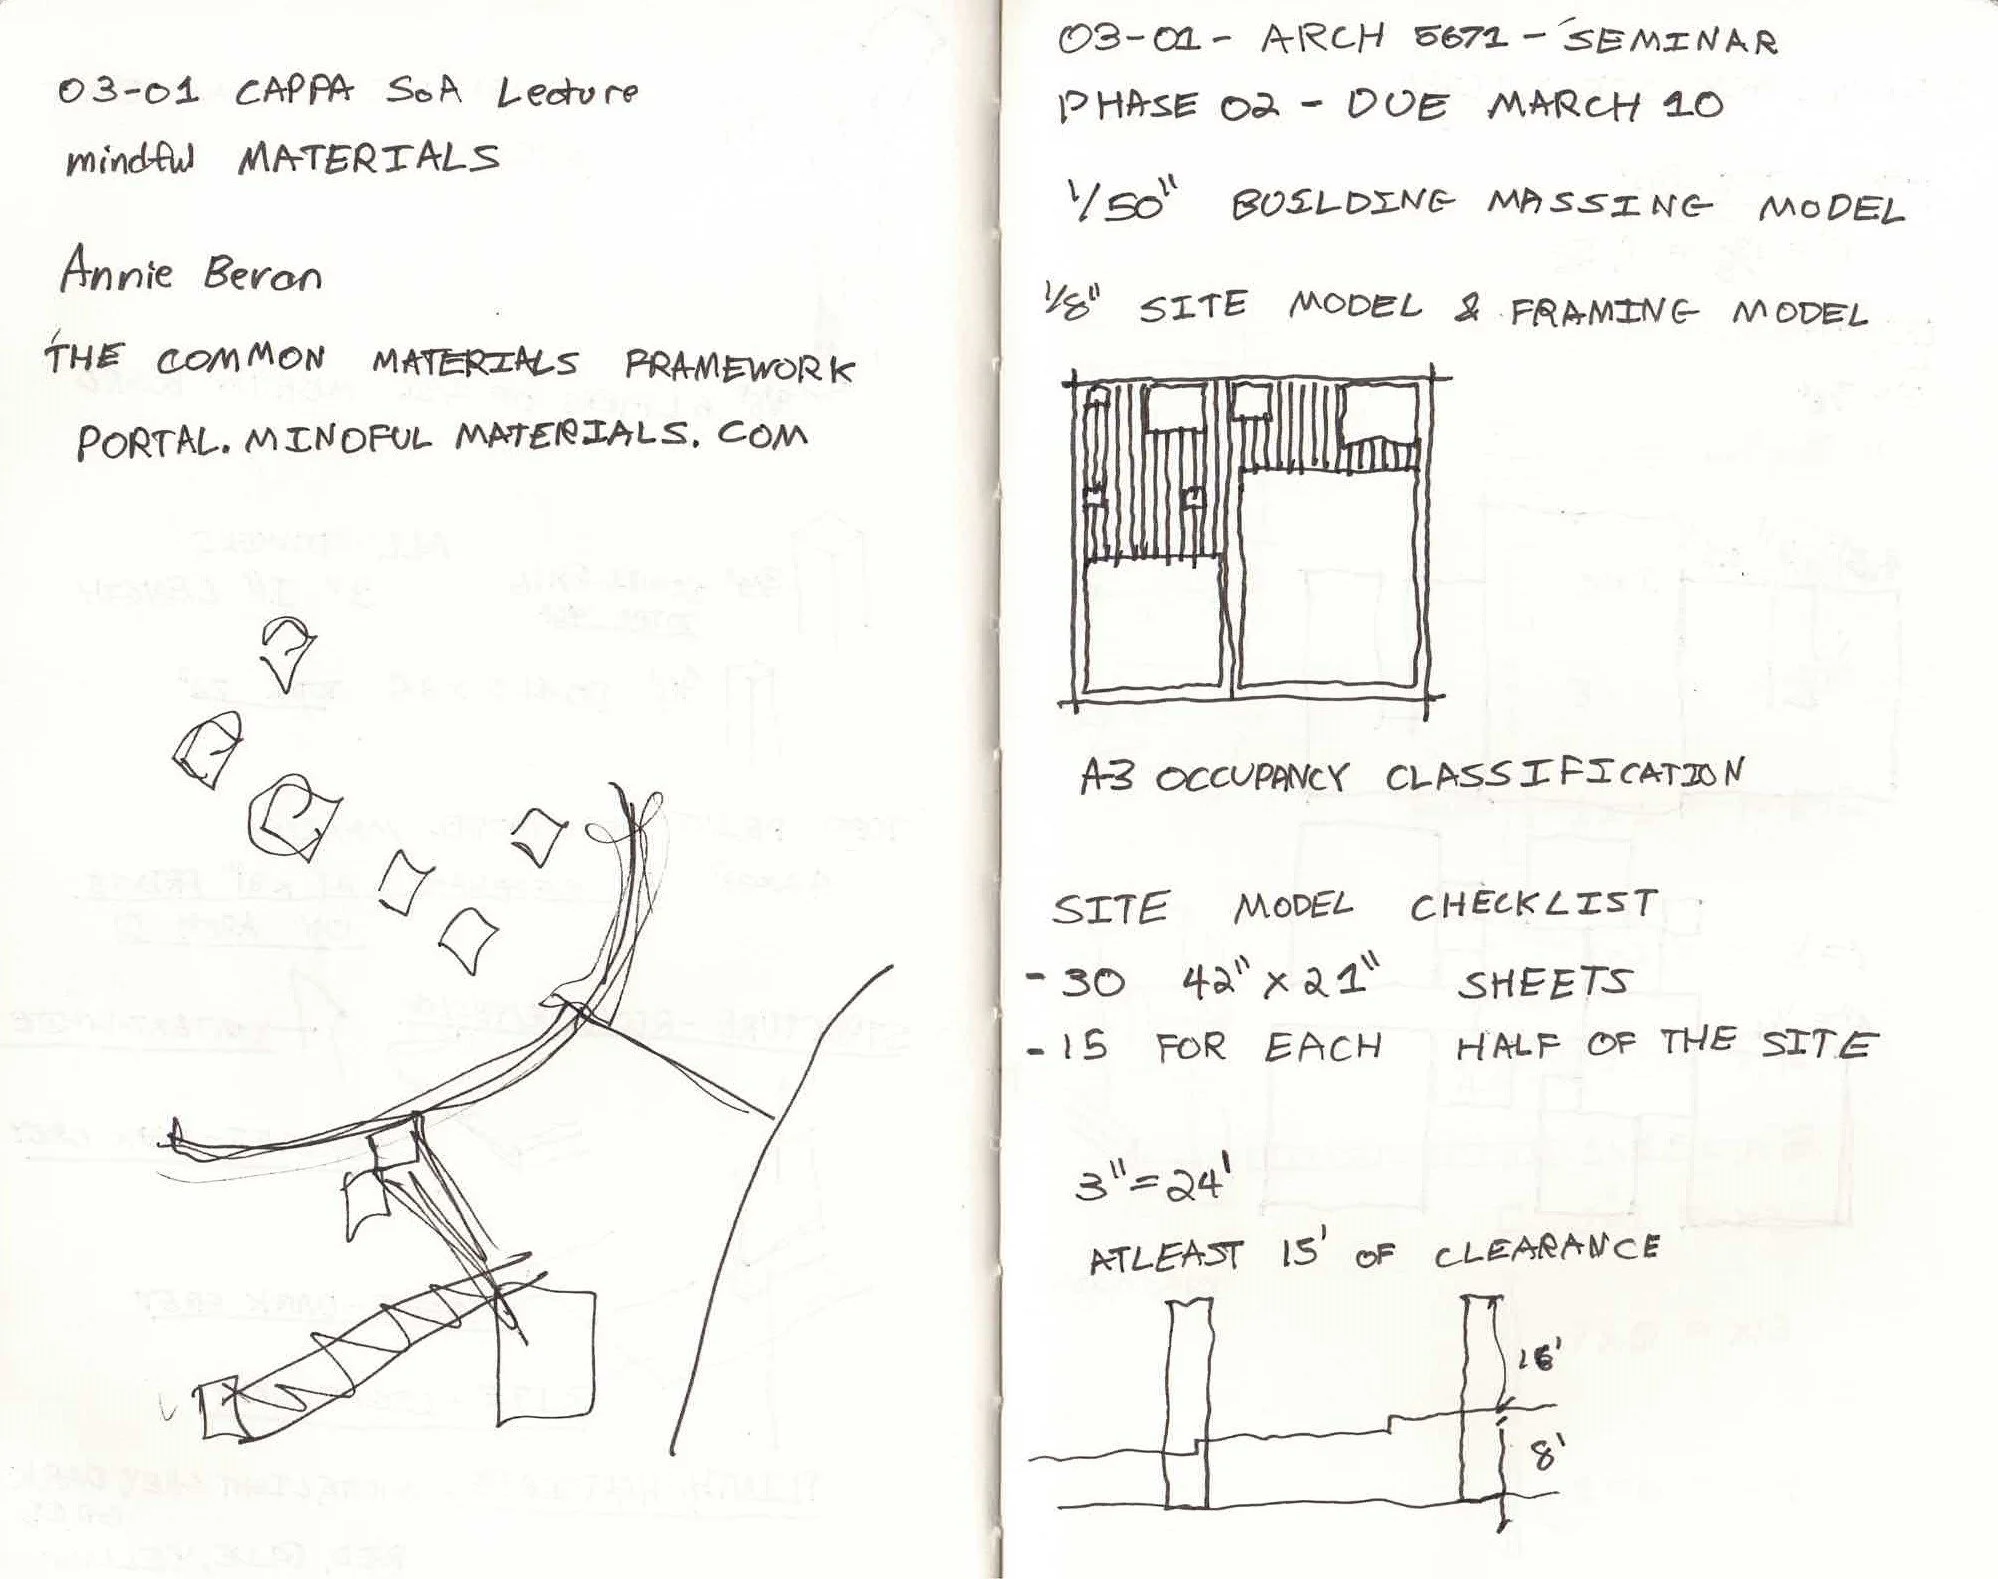 03-01 CAPPA SoA Lecture
mindful MATERIALS
Annie Beran
THE COMMON MATERIALS FRAMEWORK
PORTAL. MINDFUL MATERIALS. COM
03-01 - ARCH 5671 - SEMINAR
PHASE 02 - DUE MARCH 10
1/50" BUILDING MASSING MODEL
1/8" SITE MODEL & FRAMING MODEL
A-3 OCCUPANCY CLASSIFICATION
SITE MODEL CHECKLIST
- 30 42" x 21" SHEETS
- 15 FOR EACH HALF OF THE SITE
3" = 24'
ATLEAST 15' OF CLEARANCE
16'
8'